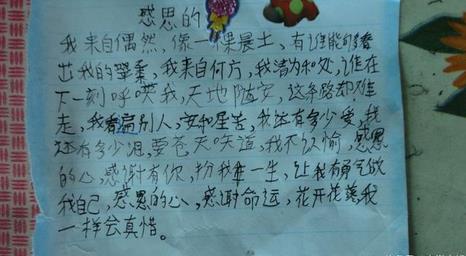 感恩的
我来自偶然,像一棵晨土,有谁能够看
出我的柔,我来自何方,我清为和处,谁在
下一刻呼唤我,天地随安,这条路却难
走,我看遍别人,安和星苦,我还有多少爱,我
还有多少泪,要苍天味道,我不以愉,感恩
的心,感谢有你,扮我一生,让我有勇气做
我自己,感恩的心,感谢命运,花开花落我
一样会真惜。